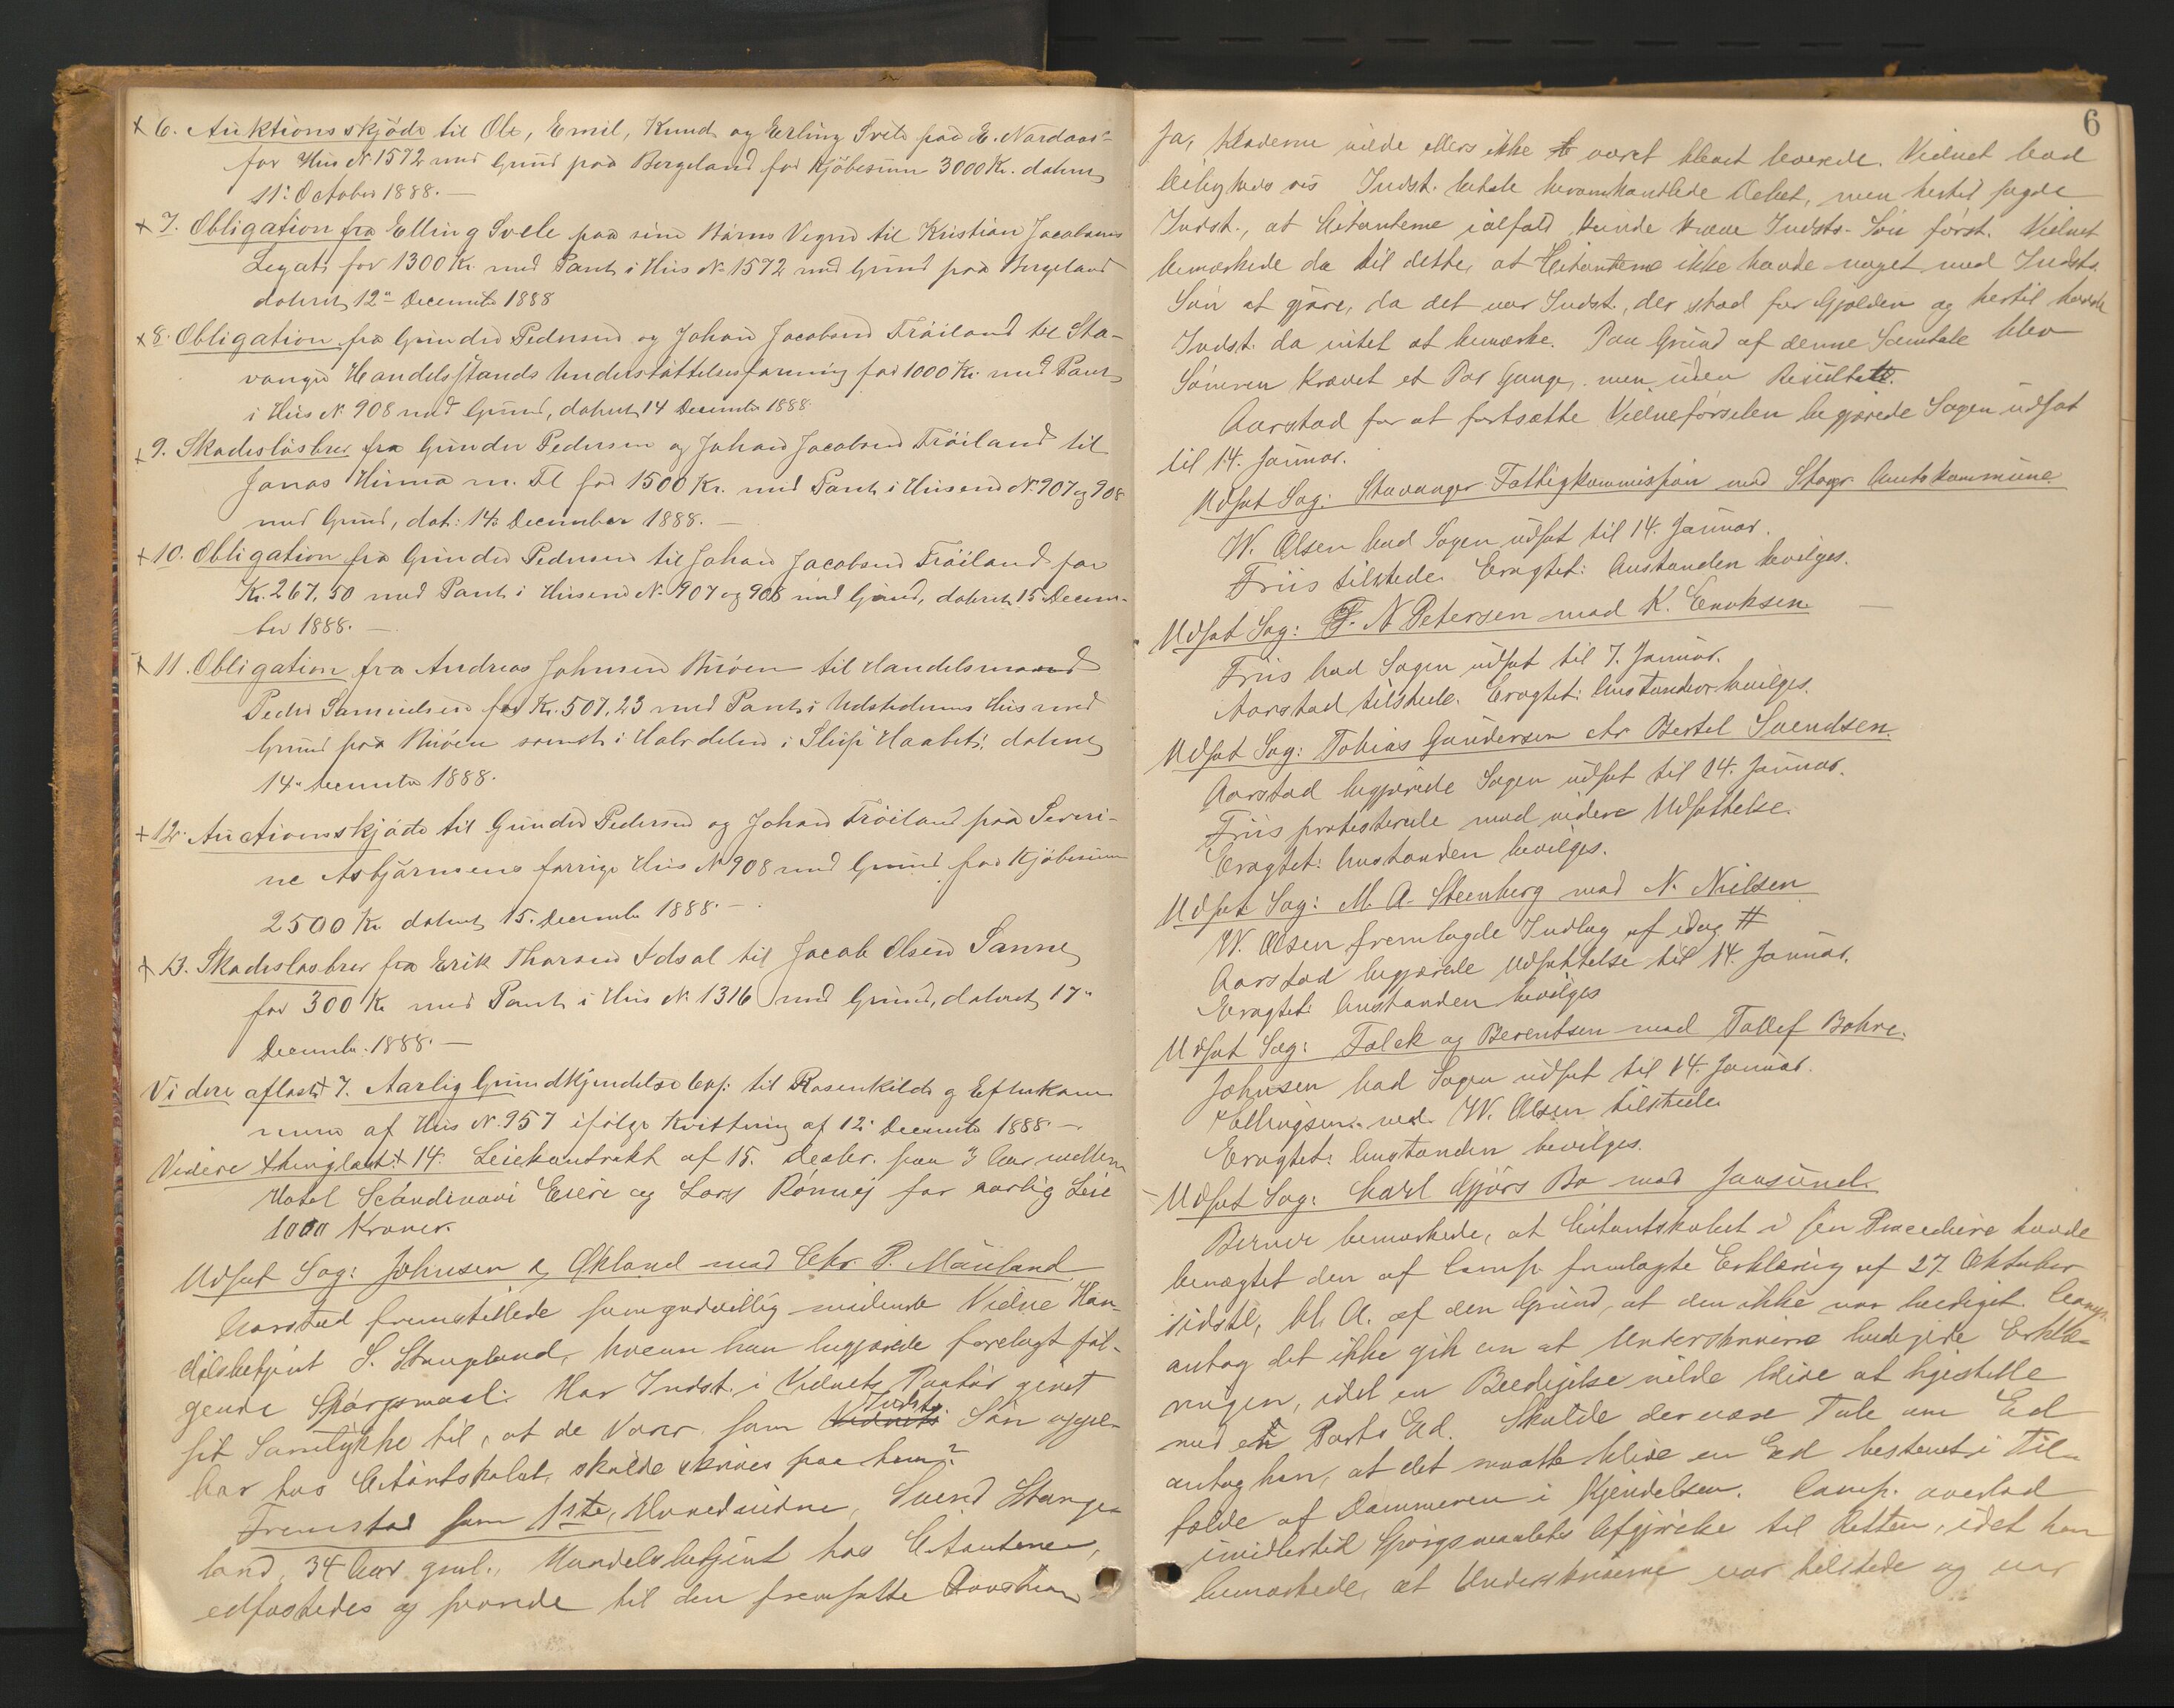 + 6. Auktionsskjöde til Ole, Emil, Knud og Erling Svele paa E. Nordaas'
for Hus N 1572 med Grund paa Bergeland for Kjöbesum 3000 Kr. dateret
11: October 1888. —
+ 7. Obligation fra Elling Svele paa sine Börns Vegne til Kristian Jacobsens
Legat for 1300 Kr. med Pant i Hus N. 1572 med Grund paa Bergeland
dateret 12" December 1888
+ 8. Obligation fra Gunder Pedersen og Johan Jacobsen Tröiland til Sta-
vanger Handelsstands Understöttelsesforening for 1000 Kr. med Pant
i Hus N. 908 med Grund, dateret 14 December 1888.
+ 9. Skadeslösbrev fra Gunder Pedersen og Johan Jacobsen Tröiland til
Jonas Hinna m. Fl for 1500 Kr. med Pant i Husene N. 907 og 908
med Grund, dat: 14: December 1888. —
+ 10. Obligation fra Gunder Pedersen til Johan Jacobsen Tröiland for
Kr. 267,50 med Pant i Husene N. 907 og 908 med Grund, dateret 15 Decem-
ber 1888. —
+ 11. Obligation fra Andreas Johnsen Buöen til Handelsmand
Peder Samuelsen for Kr. 507,23 med Pant i Udstederens Hus med
Grund paa Buöen samt i Halvdelen i Slup Haabet; dateret
14" December 1888.
+ 12. Auctionsskjöde til Gunder Pedersen og Johan Tröiland paa Severi-
ne Asbjörnsens forrige Hus N 908 med Grund for Kjöbesum
2500 Kr dateret 15. December 1888. —
+ 13. Skadeslösbrev fra Erik Thorsen Idsal til Jacob Olsen Sannes
for 300 Kr med Pant i Hus N. 1316 med Grund, dateret 17"
December 1888. —
Videre aflæst + 7. Aarlig Grundkjendelse til Rosenkilde og Efterkom
mere af Hus N. 957 ifölge Kvittering af 12. December 1888 —
Videre thinglæst: + 14. Leiekontrakt af 15. Decbr. paa 3 Aar mellem
Hotel Scandinavi Eiere og Lars Rönnej for aarlig Leie
1000 Kroner.
Udsat Sag: Johnsen & Ökland mod Chr. P. Mauland
Aarstad fremstillede som godvillig mödende Vidne Han-
delsbetjent S. Stangeland, hvem han begjærede forelagt föl-
gende Spörgsmaal: Har Indst. i Vidnets Paahör givet
sit Samtykke til, at de Varer som Vidnets Indsts. Sön oppe-
bar hos Citantskabet, skulde skrives paa ham?
Fremstod som 1ste Hovedvidne, Svend Stange-
land, 34 Aar gml., Handelsbetjent hos Citanterne,
edfæstedes og svarede til den fremsatte Qvæstion
6
Ja, Kloderne vilde ellers ikke være blevet leverede. Vidnet bad
leilighedsvis Indst. betale heromhandlede Beløb, men hertil sagde
Indst., at Citanterne ialfald kunde kræve Indsts. Sön först. Vidnet
bemærkede da til dette, at Citanterne ikke havde noget med Indsts.
Sön at gjöre, da det var Indst., der stod for Gjælden og hertil havde
Indst. da intet at bemærke. Paa Grund af denne Samtale blev
Sönnen krævet et Par Gange, men uden Resultat.
Aarstad for at fortsætte Vidneförselen begjærede Sagen udsat
til 14. Januar.
Udsat Sag: Stavanger Fattigkommission mod Stavgr. Amtskommune
W. Olsen bad Sagen udsat til 14. Januar.
Friis tilstede. Eragtet: Anstanden bevilges.
Udsat Sag: F. N Petersen mod K. Enoksen.
Friis bad Sagen udsat til 7. Januar.
Aarstad tilstede. Eragtet: Anstanden bevilges.
Udsat Sag: Tobias Gundersen ctr Bertel Svendsen.
Aarstad begjærede Sagen udsat til 14. Januar.
Friis protesterede mod videre Udsættelse.
Eragtet: Anstanden bevilges.
Udsat Sag: M. A. Steenberg mod N. Nielsen
W. Olsen fremlagde Indlæg af idag #
Aarstad begjærede Udsættelse til 14. Januar.
Eragtet: Anstanden bevilges
Udsat Sag: Falck og Berentsen mod Tollef Bohre.
Johnsen bad Sagen udsat til 14. Januar.
Ellingsen ved W. Olsen tilstede
Eragtet: Anstanden bevilges.
Udsat Sag: Carl Gjörs Bo mod Jansund.
Berner bemærkede, at Citantskabet i sin Procedure havde
benægtet den af Comp. fremlagte Erklæring af 27. Oktober
sidstl., bl. A. af den Grund, at den ikke var beediget. Comp.
antog det ikke gik an at Underskriverne beedigede Erklæ-
ringen, idet en Beedigelse vilde blive at ligestille
med en Parts Ed. Skulde der være Tale om Ed
antog han, at det maatte blive en Ed bestemt i Til-
fælde af Dommeren i Kjendelsen. Comp. overlod
imidlertid Spörgsmaalets Afgjörelse til Retten, idet han
bemærkede, at Underskriverne var tilstede og var